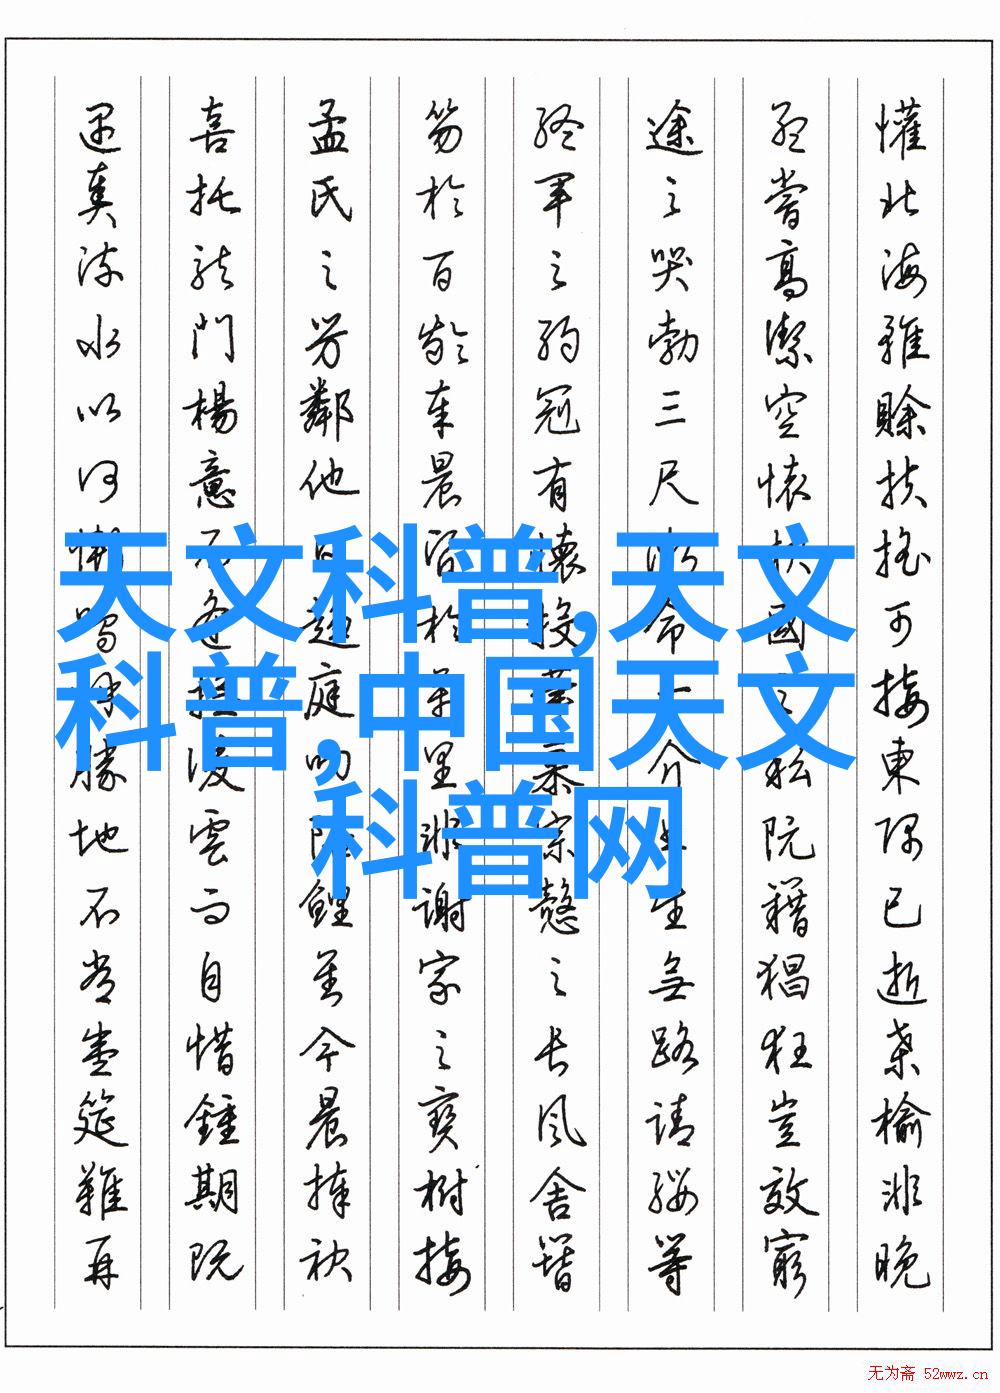 懽北海雖賒扶搖可接東隅已逝桑榆非晚
孟嘗高潔空懷報國之情阮籍猖狂豈效窮
途之哭勃三尺微命一介書生無路請纓等
終軍之弱冠有懷投筆慕宗愨之長風舍簪
笏於百齡奉晨昏於萬里非謝家之寶樹接
孟氏之芳鄰他日趨庭叨陪鯉對今晨捧袂
喜托龍門楊意不逢撫凌雲而自惜鍾期既
遇奏流水以何慚嗚呼勝地不常盛筵難再
天文科普,天文
科普,中国天文
科普网
无为斋 52wwz.cn